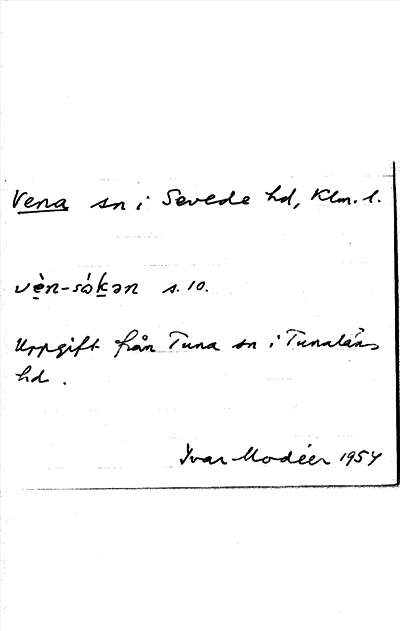 Vena sn i Sevede hd, Klm. l.
vèn-såkən s. 10.
Uppgift från Tuna sn i Tunaläns
hd.
Ivar Modéer 1954